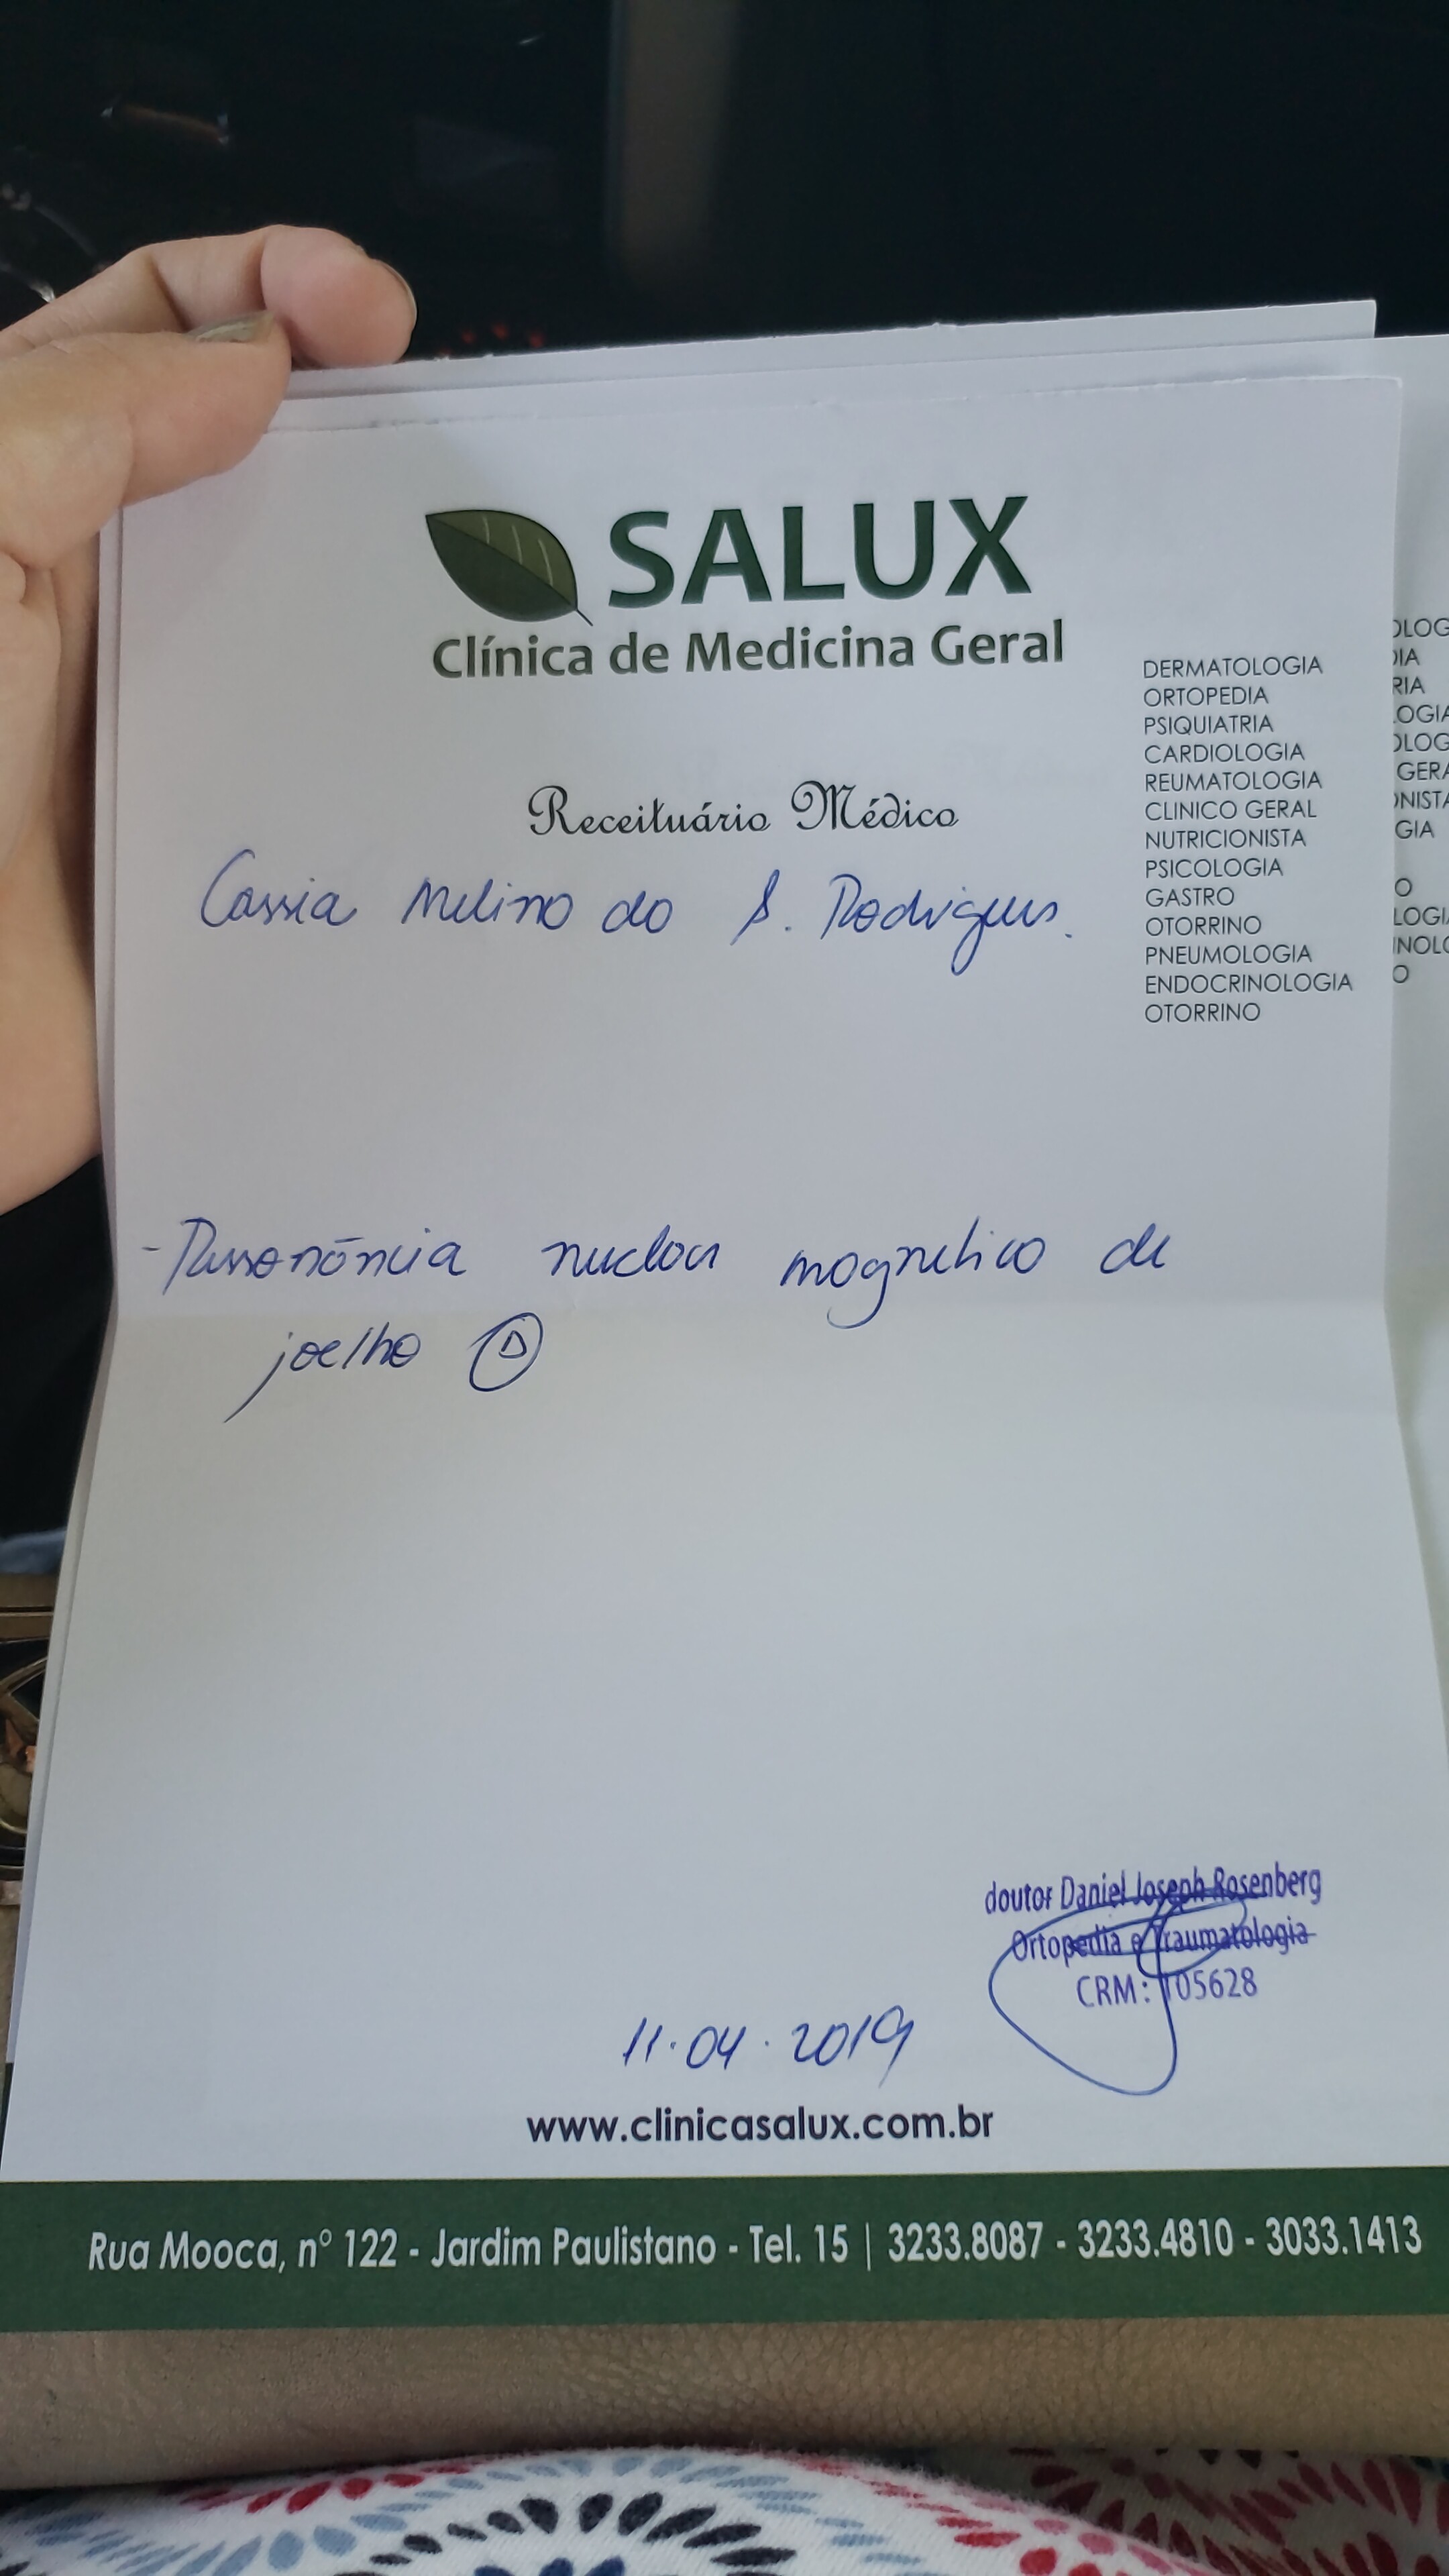 SALUX
Clínica de Medicina Geral
DERMATOLOGIA
ORTOPEDIA
PSIQUIATRIA
CARDIOLOGIA
REUMATOLOGIA
CLINICO GERAL
NUTRICIONISTA
PSICOLOGIA
GASTRO
OTORRINO
PNEUMOLOGIA
ENDOCRINOLOGIA
OTORRINO
Receituário Médico
Cassia do S. Rodrigues.
- Ressonância nuclear magnetica de
joelho D
doutor Daniel Joseph Rosenberg
Ortopedia e Traumatologia
CRM: 105628
11.04.2019
www.clinicasalux.com.br
Rua Mooca, nº 122 - Jardim Paulistano - Tel. 15 | 3233.8087 - 3233.4810 - 3033.1413